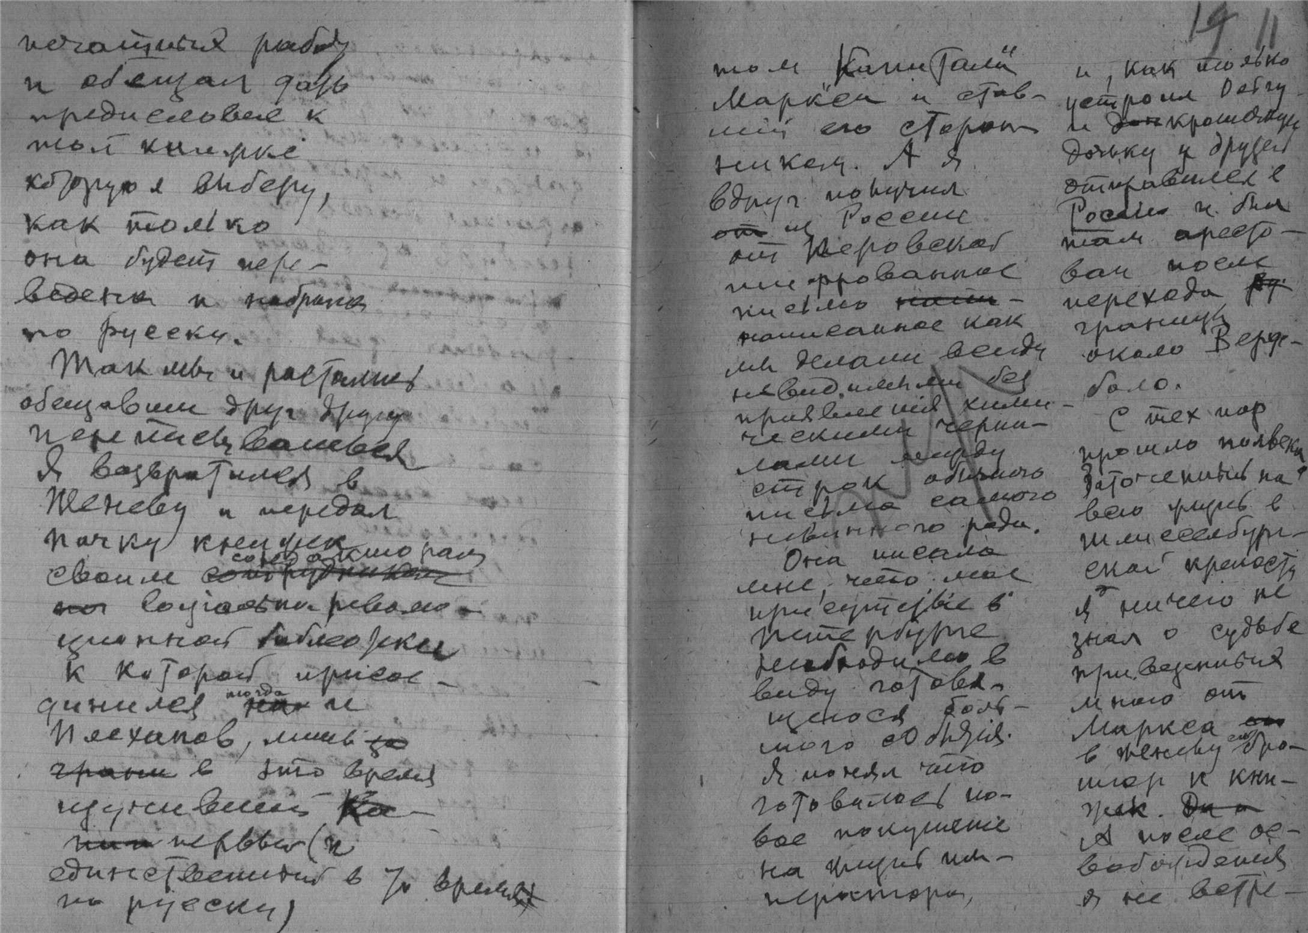 печатныя работы
и обещал дать
предисловие к
той книжке
которую я выберу,
как только
она будет пере-
ведена и набрана
по русски.
Так мы и растались
обещавши друг другу
переписываться
Я возвратился в
Женеву и передал
пачку книжек
соредакторам
своим сотрудникам
по социально-револю-
ционной библиотеки
к которой присое-
тогда
динился и
Плеханов, лишь за
грани в это время
изучивший Ка-
пит первый (и
единственный в то время
по русски)
19 11
том "Капитала"
Маркса и став-
ший его сторон-
ником. А я
вдруг получил
от из России
от Перовской
шифрованное
письмо напи-
написанное как
мы делали всегда
невидимыми без
проявления хими-
ческими черни-
лами между
строк обычного
письма самого
невинного рода.
Она писала
мне, что мое
присутствие в
Петербурге
необходимо в
виду готовя-
щегося боль-
шого события.
Я понял что
готовилось но-
вое покушение
на жизнь им-
ператора,
и, как только
устроил Ольгу
и крошечную
дочку у друзей
отправился в
Россию и был
там аресто-
ван после
перехода
границы
около Верж-
боло.
С тех пор
прошло полвека
Заточенный на
всю жизнь в
Шлиссельбург-
ской крепости
я ничего не
знал о судьбе
привезенных
мною от
Маркса
в Женеву бро-
шюр и кни-
жек. Да и
А после ос-
вобождения
я не встре-